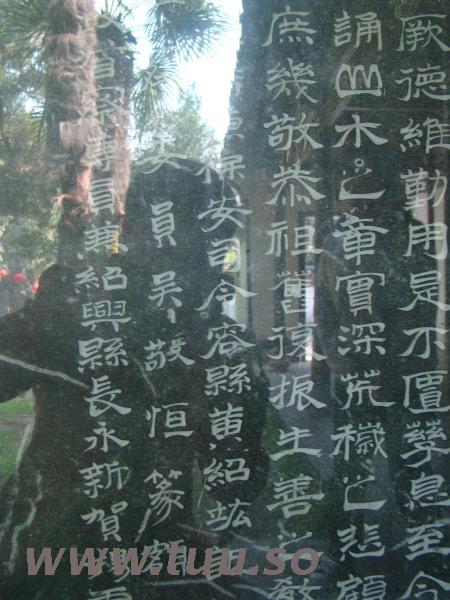 厥德維勤用是不匱孳息至今
誦山木之章實深荒穢之悲顧
庶幾敬恭祖舊復振生善之教
保安司令容縣黃紹竑
委員吳敬恒篆額
察專員兼紹興縣長永新賀
www.tuu.so